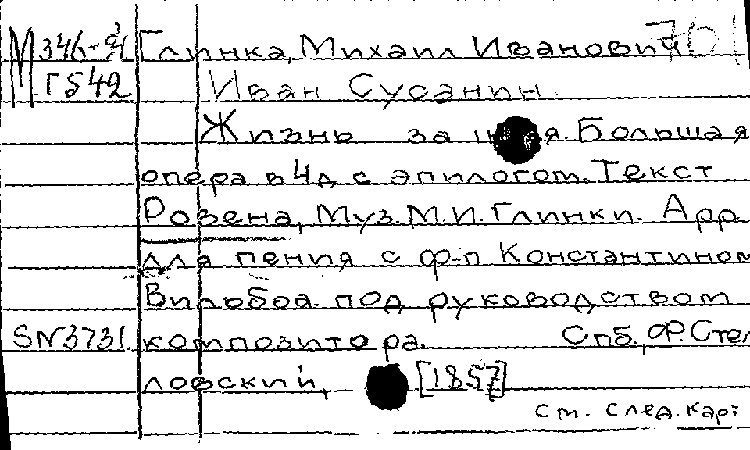 М 346-Я Глинка, Михаил Иванович
Г 542 Иван Сусанин.
Жизнь за Большая
опера в 4 д с эпилогом. Текст
Розена, Муз. М.И. Глинки. Арр.
для пения с ф-п Константином
Вилобоа под руководством
SN3731 композитора. Спб., Ф. Стел
ловский, [1857]
См. след. кар